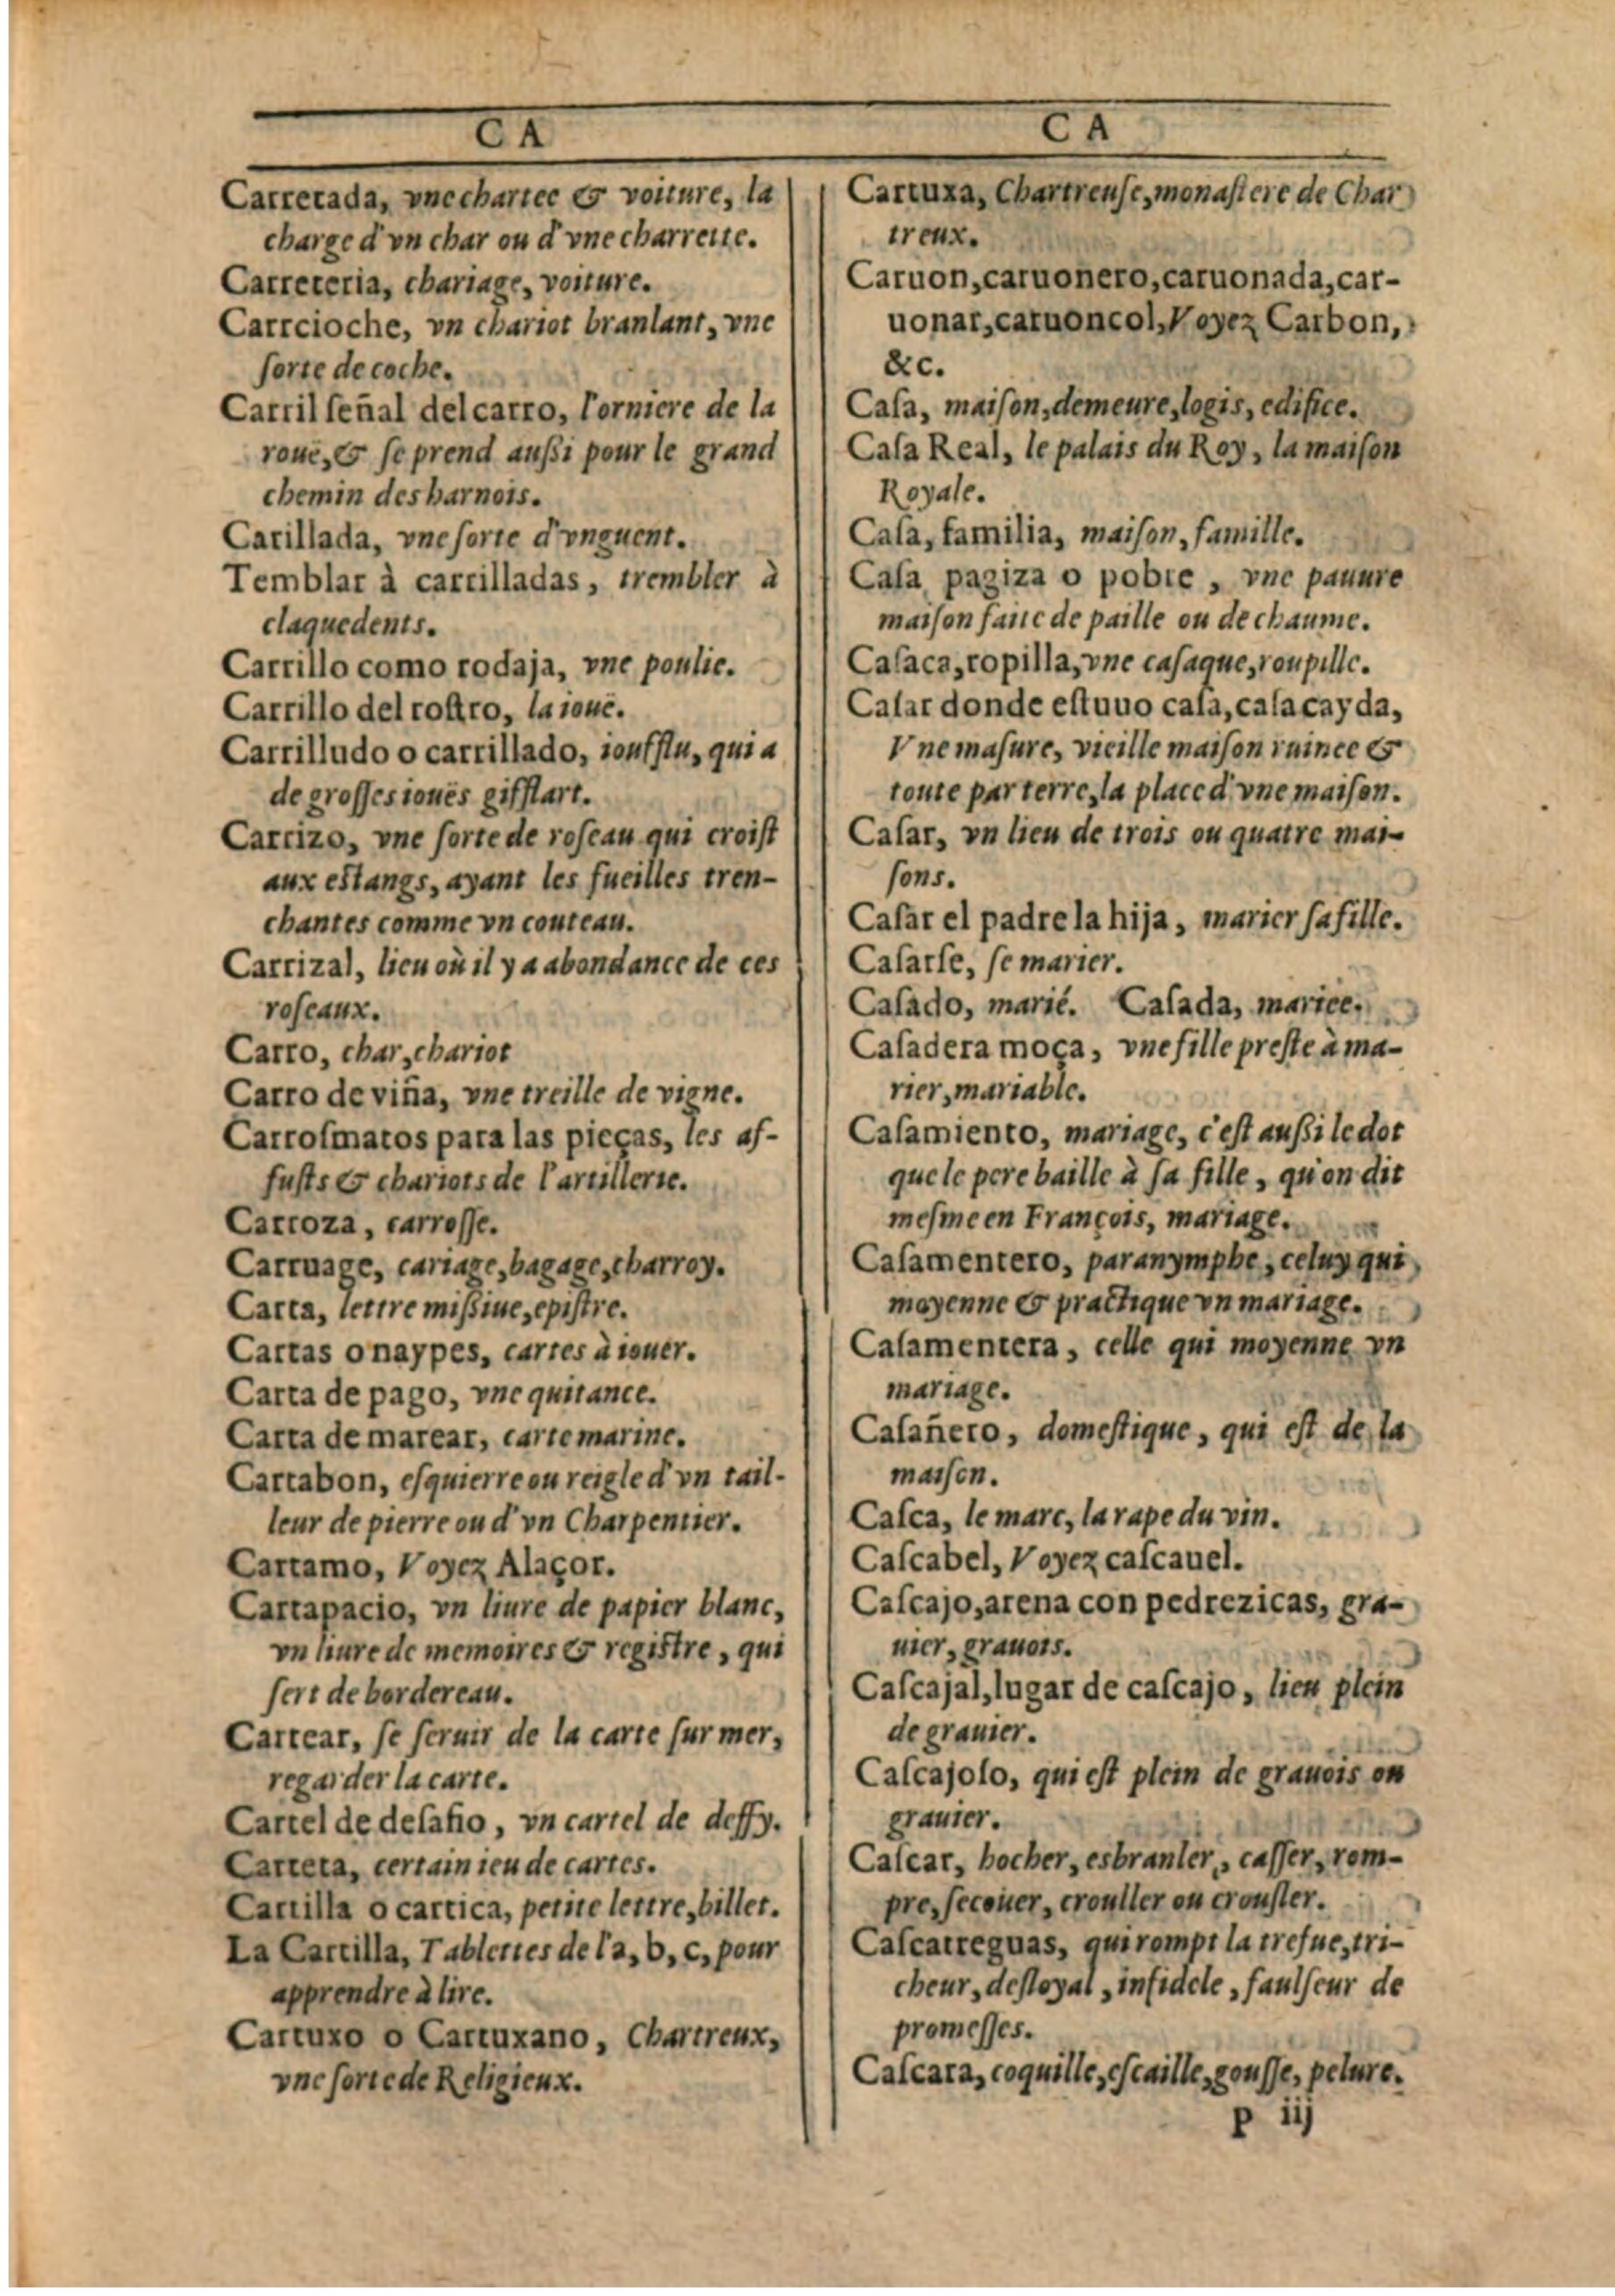 CA
Carretada, vne chartee & voiture, la
charge d'vn char ou d'vne charrette.
Carreteria, chariage, voiture.
Carrcioche, vn chariot branlant, vne
sorte de coche.
Carril señal del carro, l'orniere de la
rouë, & se prend aussi pour le grand
chemin des harnois.
Carillada, vne sorte d'vnguent.
Temblar à carrilladas, trembler à
claquedents.
Carrillo como rodaja, vne poulie.
Carrillo del rostro, la iouë.
Carrilludo o carrillado, ioufflu, qui a
de grosses iouës gifflart.
Carrizo, vne sorte de roseau qui croist
aux estangs, ayant les fueilles tren-
chantes comme vn couteau.
Carrizal, lieu où il y a abondance de ces
roseaux.
Carro, char, chariot
Carro de viña, vne treille de vigne.
Carrosmatos para las pieças, les af-
fusts & chariots de l'artillerie.
Carroza, carrosse.
Carruage, cariage, bagage, charroy.
Carta, lettre missiue, epistre.
Cartas o naypes, cartes à iouer.
Carta de pago, vne quitance.
Carta de marear, carte marine.
Cartabon, esquierre ou reigle d'vn tail-
leur de pierre ou d'vn Charpentier.
Cartamo, Voyez Alaçor.
Cartapacio, vn liure de papier blanc,
vn liure de memoires & registre, qui
sert de bordereau.
Cartear, se seruir de la carte sur mer,
regarder la carte.
Cartel de desafio, vn cartel de deffy.
Carteta, certain ieu de cartes.
Cartilla o cartica, petite lettre, billet.
La Cartilla, Tablettes de l'a, b, c, pour
apprendre à lire.
Cartuxo o Cartuxano, Chartreux,
vne sorte de Religieux.
CA
Cartuxa, Chartreuse, monastere de Char
treux.
Caruon, caruonero, caruonada, car-
uonar, caruoncol, Voyez Carbon,
&c.
Casa, maison, demeure, logis, edifice.
Casa Real, le palais du Roy, la maison
Royale.
Casa, familia, maison, famille.
Casa pagiza o pobre, vne pauure
maison faite de paille ou de chaume.
Casaca, ropilla, vne casaque, roupille.
Casar donde estuuo casa, casa cayda,
Vne masure, vieille maison ruinee &
toute par terre, la place d'vne maison.
Casar, vn lieu de trois ou quatre mai-
sons.
Casar el padre la hija, marier sa fille.
Casarse, se marier.
Casado, marié. Casada, mariee.
Casadera moça, vne fille preste à ma-
rier, mariable.
Casamiento, mariage, c'est aussi le dot
que le pere baille à sa fille, qu'on dit
mesme en François, mariage.
Casamentero, paranymphe, celuy qui
moyenne & practique vn mariage.
Casamentera, celle qui moyenne vn
mariage.
Casañero, domestique, qui est de la
maison.
Casca, le marc, la rape du vin.
Cascabel, Voyez cascauel.
Cascajo, arena con pedrezicas, gra-
uier, grauois.
Cascajal, lugar de cascajo, lieu plein
de grauier.
Cascajoso, qui est plein de grauois ou
grauier.
Cascar, hocher, esbranler, casser, rom-
pre, secouer, crouller ou crousler.
Cascatreguas, qui rompt la trefue, tri-
cheur, desloyal, infidele, faulseur de
promesses.
Cascara, coquille, escaille, gousse, pelure.
p iij